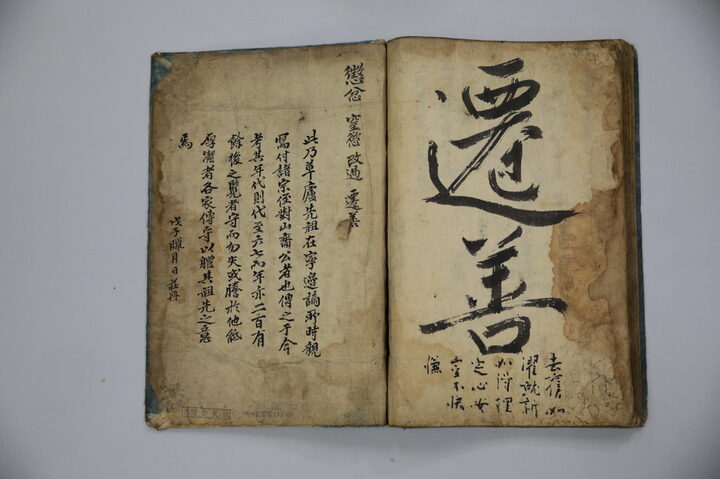 遷善
去舊如
濯就新
如得理
定心安
豈不快
慊
懲忿 窒慾 改過 遷善
此乃草廬先祖在寧邊謫所時親
寫付諸宗侄對山齋公者也傳之于今
考其年代則代至六七而年亦二百有
餘後之覽者守而勿失或謄於他紙
厚潔者各家傳守以體其祖先之意
焉
戊子臘月日